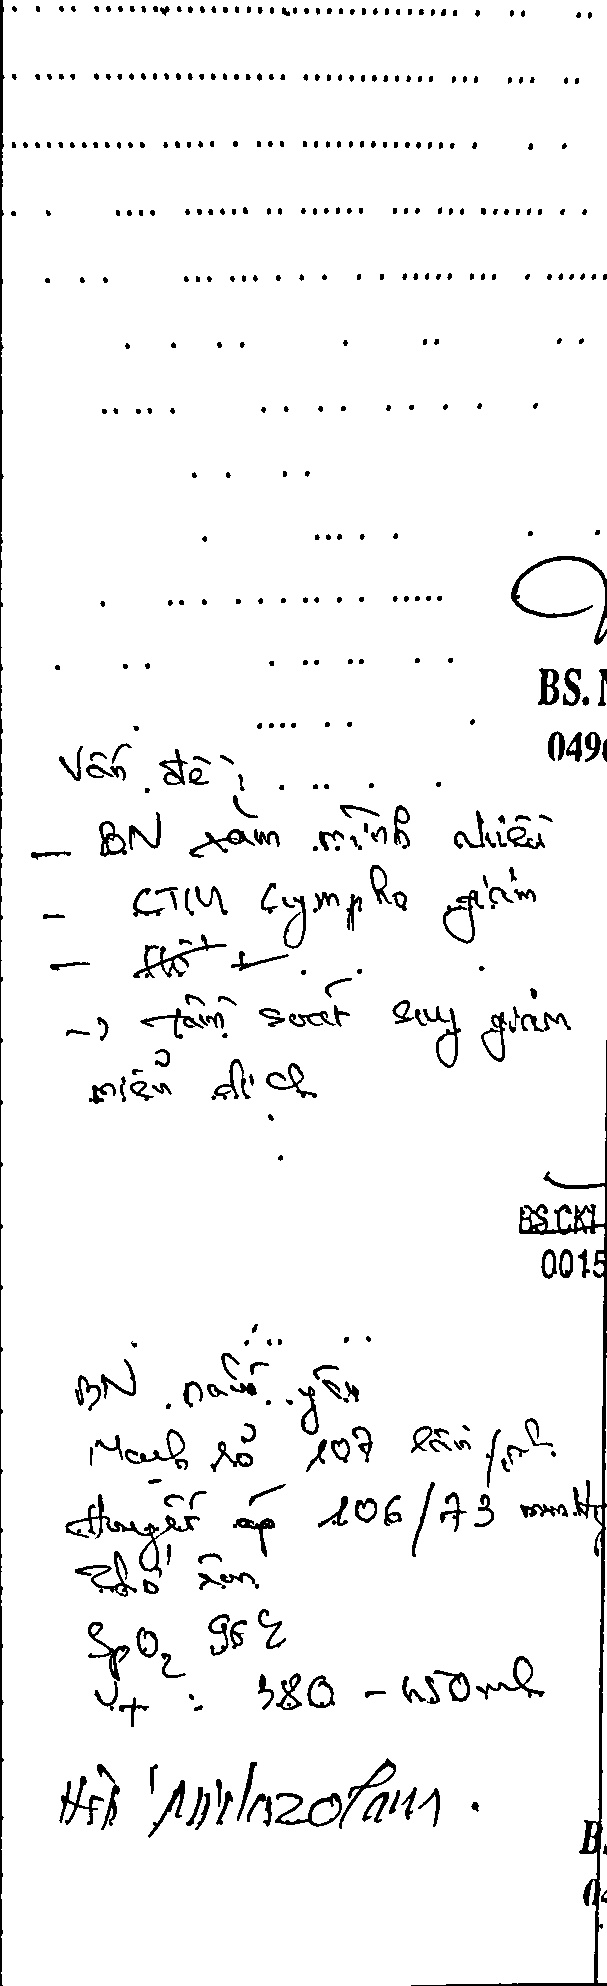 BS. N
049
Vấn đề:
- BN xăm mình nhiều
- CTM Lympho giảm
-> tầm soát suy giảm
miễn dịch
BS.CKI
0015
BN nằm yên
Mạch rõ 107 lần/ph
Huyết áp 106/73 mmHg
Thở êm
SpO2 96%
Vt : 380 - 450ml
Midazolam.
B
04